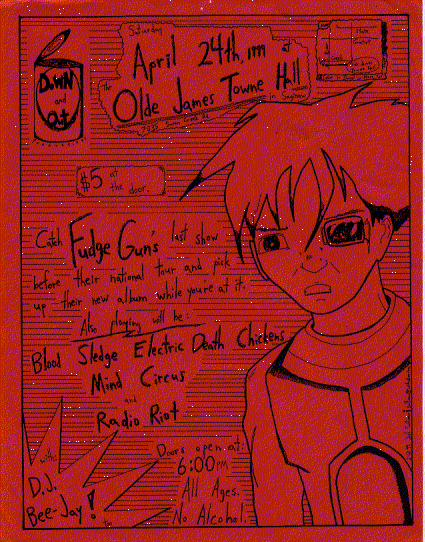 Saturday
April 24th, 1999 at
The
Olde James Towne Hall
in Saginaw
DOWN
and
Out
$5 at
the door.
Catch Fudge Gun's last show
before their national tour and pick
up their new album while you're at it.
Also playing will be:
Blood Sledge Electric Death Chickens
Mind Circus
and
Radio Riot
with
D.J.
Bee-Jay!
Doors open at:
6:00 PM
All Ages.
No Alcohol.